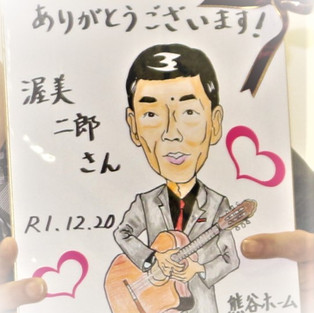 ありがとうございます!
渥美
二郎
さん
R1.12.20
熊谷ホーム